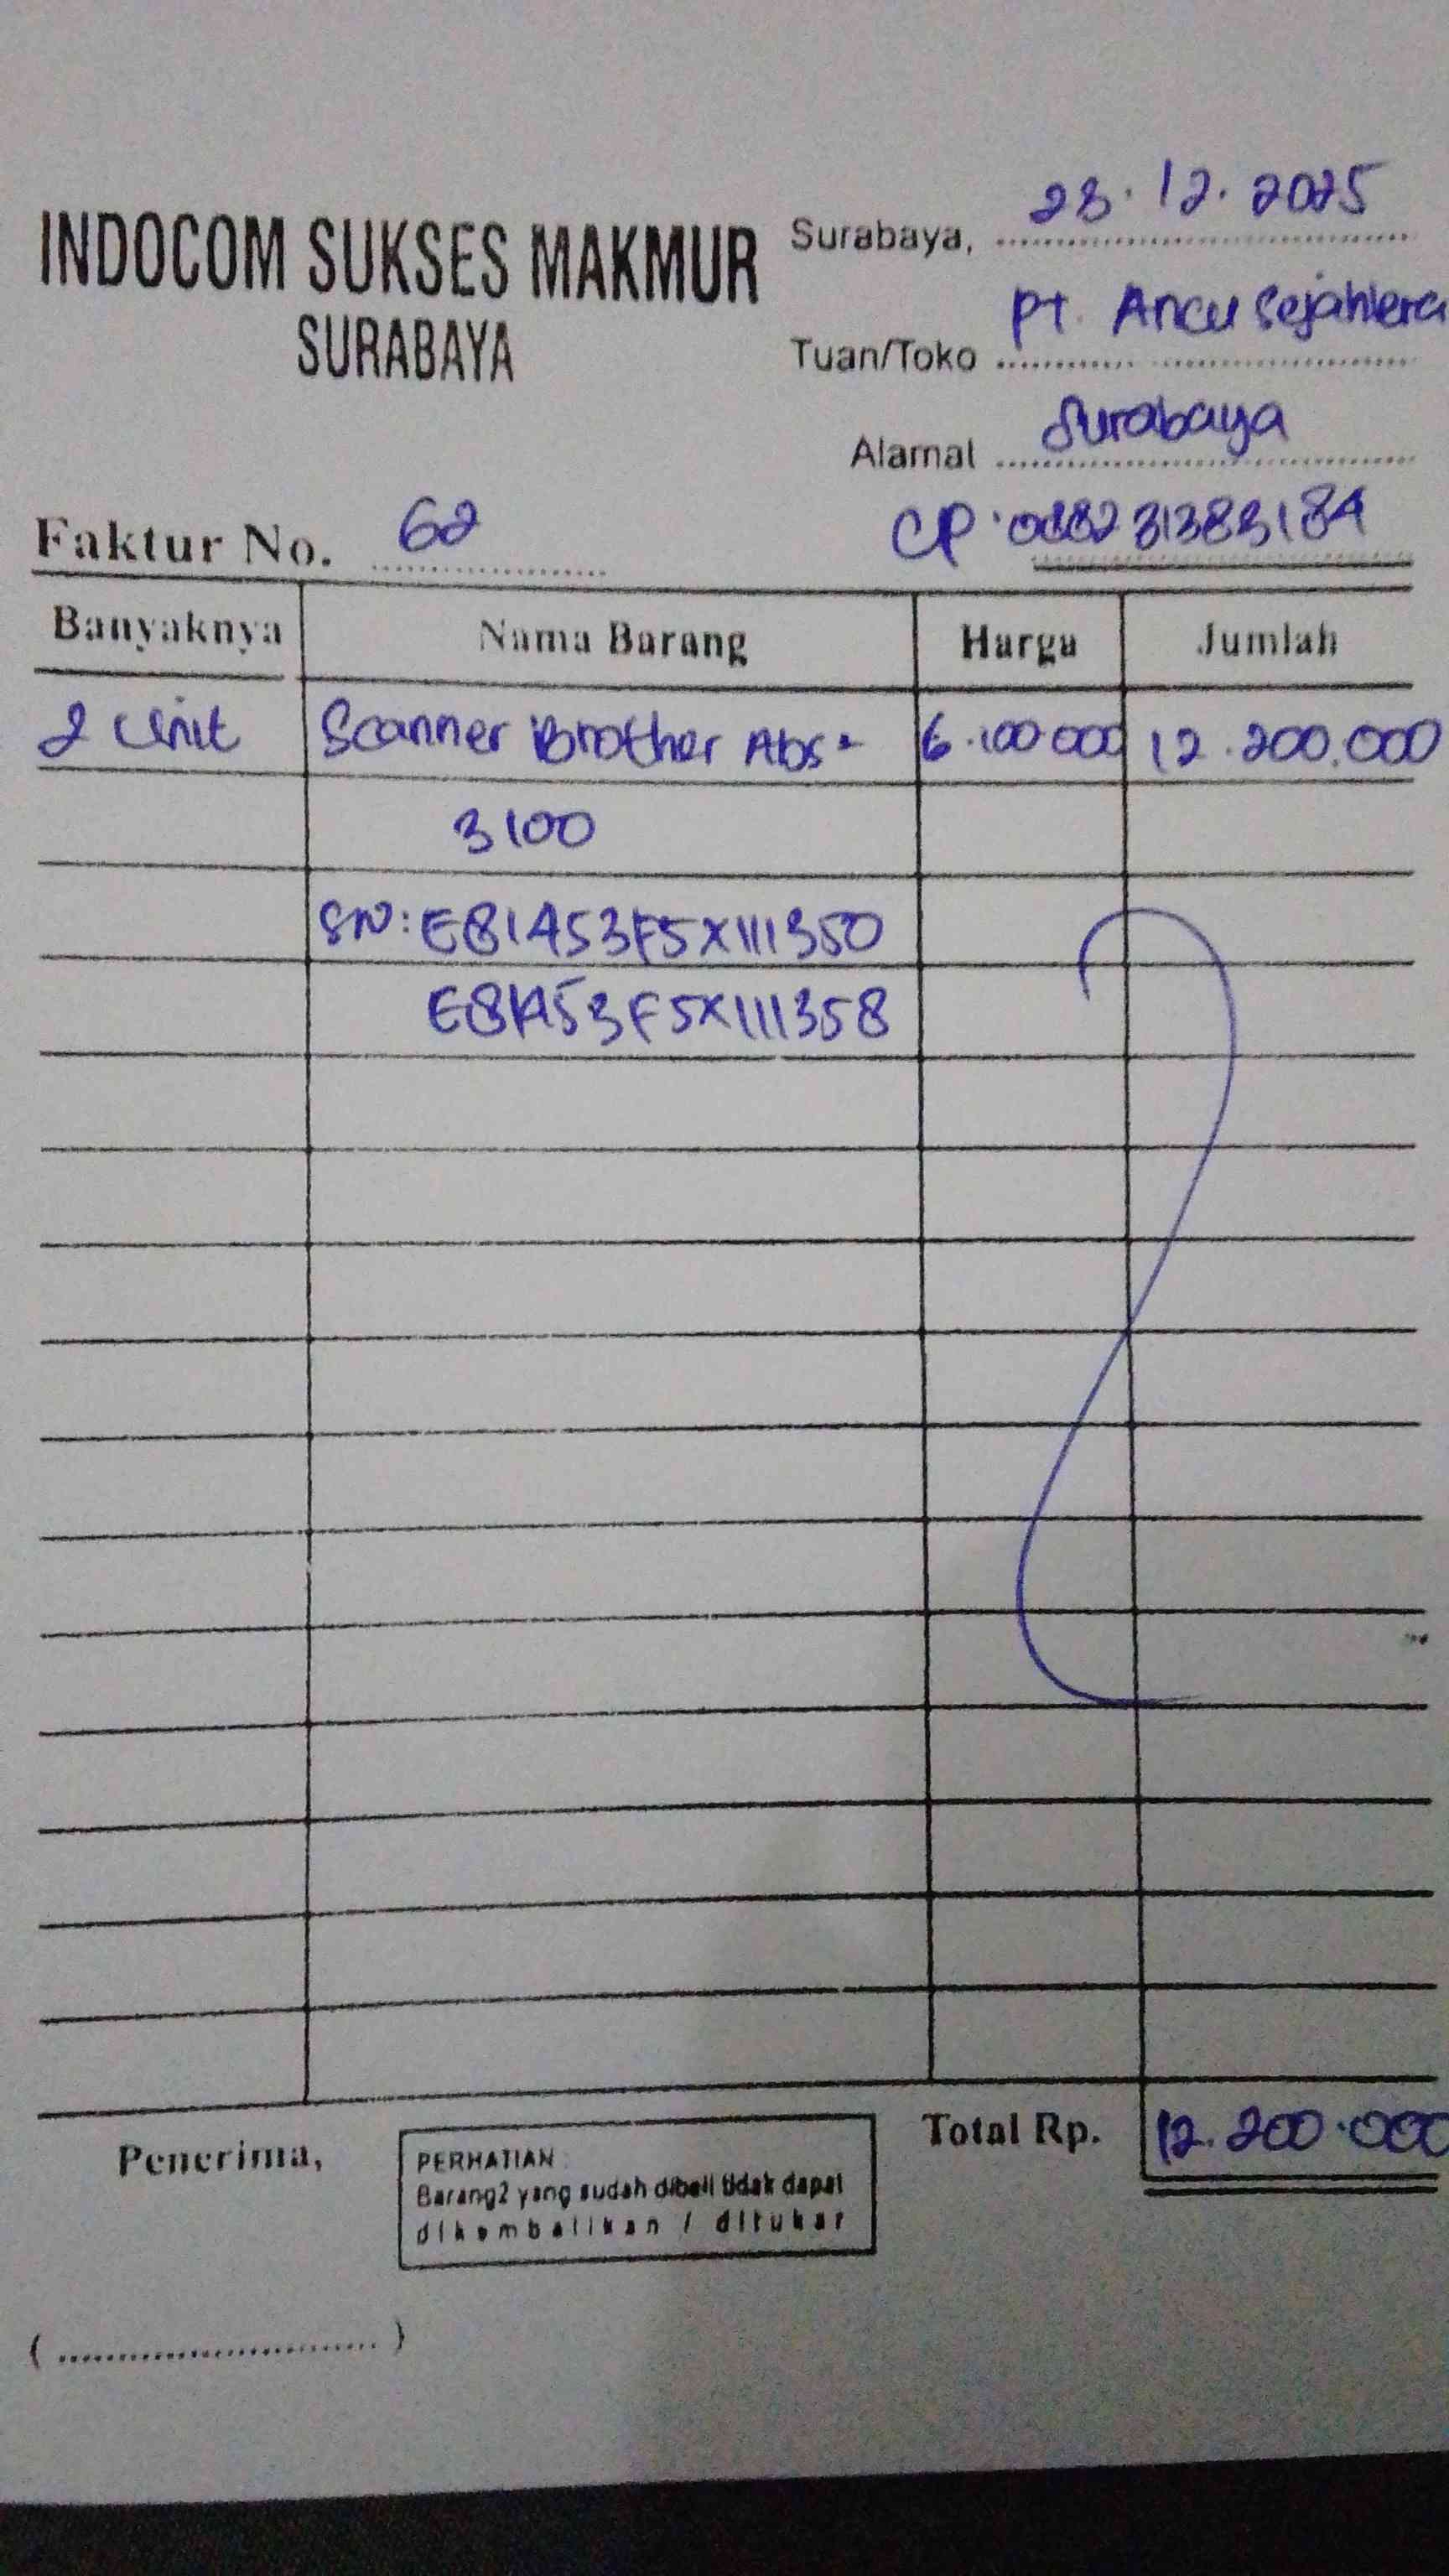 INDOCOM SUKSES MAKMUR
SURABAYA
Surabaya, 23.12.2025
Tuan/Toko PT. Ancu Sejahtera
Alamat Surabaya
Faktur No. 62
CP. 088231383184
Banyaknya Nama Barang Harga Jumlah
2 Unit Scanner Brother Ads- 6.100.000 12.200.000
3100
SN: E81A53F5X111350
E81A53F5X111358
Penerima, Total Rp. 12.200.000
PERHATIAN :
Barang2 yang sudah dibeli tidak dapat
dikembalikan / ditukar
(..............................)